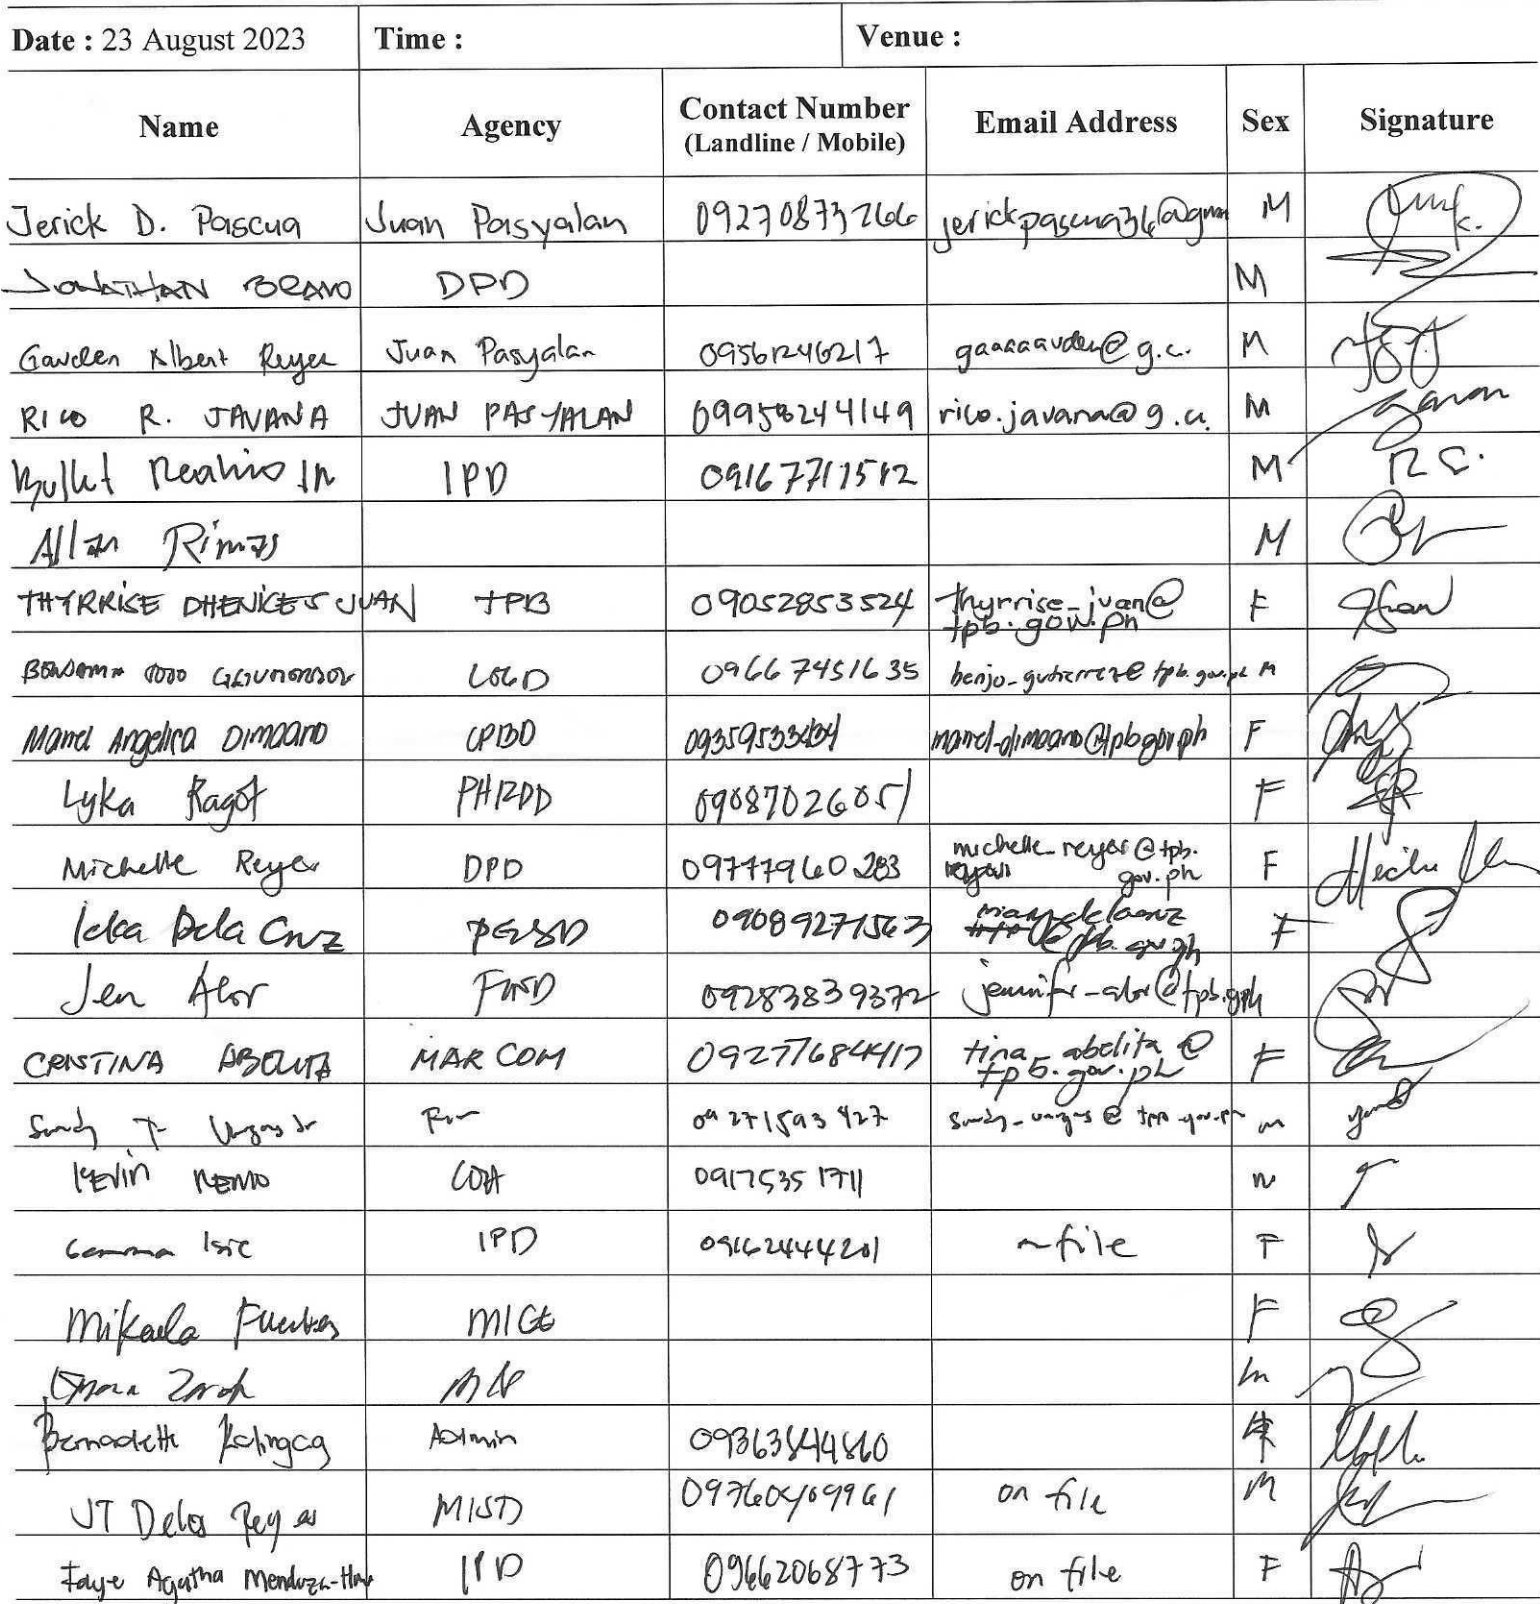 Date : 23 August 2023 Time : Venue :
Name Agency Contact Number (Landline / Mobile) Email Address Sex Signature
Jerick D. Pascua Juan Pasyalan 09270873266 jerickpascua36@gmail M
JONATHAN BRAVO DPD M
Gauden Albert Reyes Juan Pasyalan 09561246217 gaaaaauden@g.c. M
RICO R. JAVANA JUAN PASYALAN 09958244149 rico.javana@g.c. M
Bullet IPD 09167711512 M
Allan Rimas M
THYRRISE DHENICE S JUAN TPB 09052853524 thyrrise_juan@ F
tpb.gov.ph
LOGD 09667451635 benjo_gutierrez@tpb.gov.ph M
Manel Angelica Dimaano CPBD manel_dimaano@tpb.gov.ph F
Lyka Ragot PHRDD 09087026051 F
Michelle Reyes DPD 09777960283 michelle_reyes@tpb. F
gov.ph
Dela Cruz 09089271563 F
Jen Alor 09283839372 jennifer_alor@tpb.gov.ph
CRISTINA ABELITA MARCOM 09277684417 tina_abelita@ F
tpb.gov.ph
09271593427 M
KEVIN NEMO COA 09175351711 M
IPD 09162444201 file F
Mikaela Fuentes MICE F
M
Bernadette Kalingag Admin 09363844860 F
JT Delos Reyes MISD 09760409961 on file M
Faye Agatha Mendoza IPD 09662068773 on file F